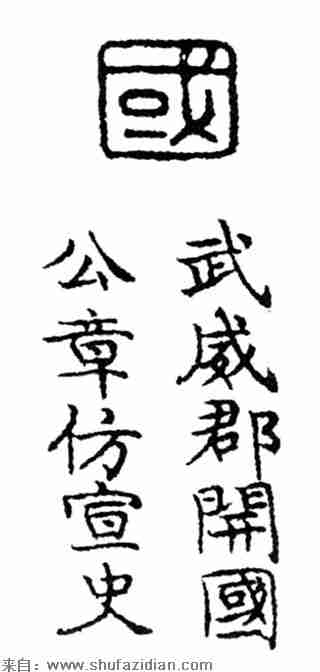 國
武威郡開國
公章仿宣史
来自：www.shufazidian.com